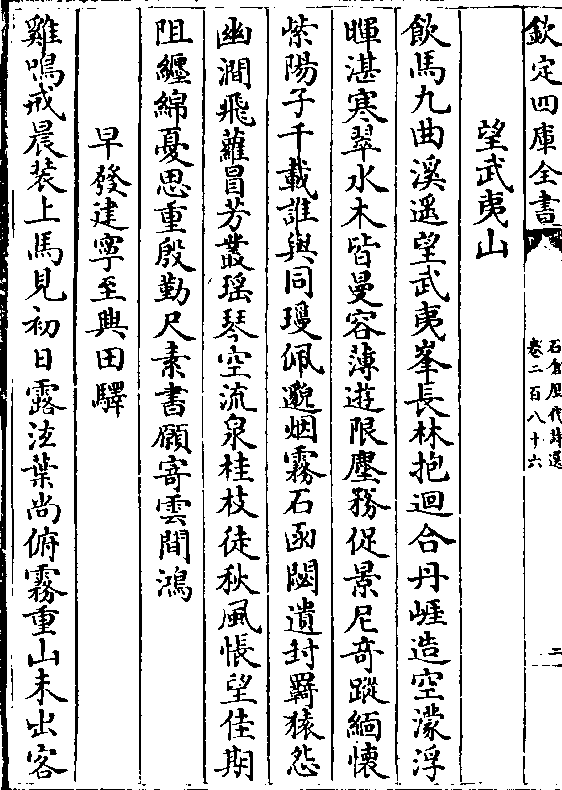 欽定四庫全書
石倉歷代詩選
卷二百八十六
二
望武夷山
飲馬九曲溪遥望武夷峯長林抱迴合丹崕造空濛浮
暉湛寒翠水木皆曼容薄遊限塵務促景尼奇蹤緬懐
紫陽子千載誰與同瓊佩邈烟霧石函閟遺封羇猿怨
幽澗飛蘿冒芳叢瑶琴空流泉桂枝徒秋風悵望佳期
阻纏綿憂思重殷勤尺素書願寄雲間鴻
早發建寧至興田驛
雞鳴戒晨裝上馬見初日露泫葉尚俯霧重山未出客